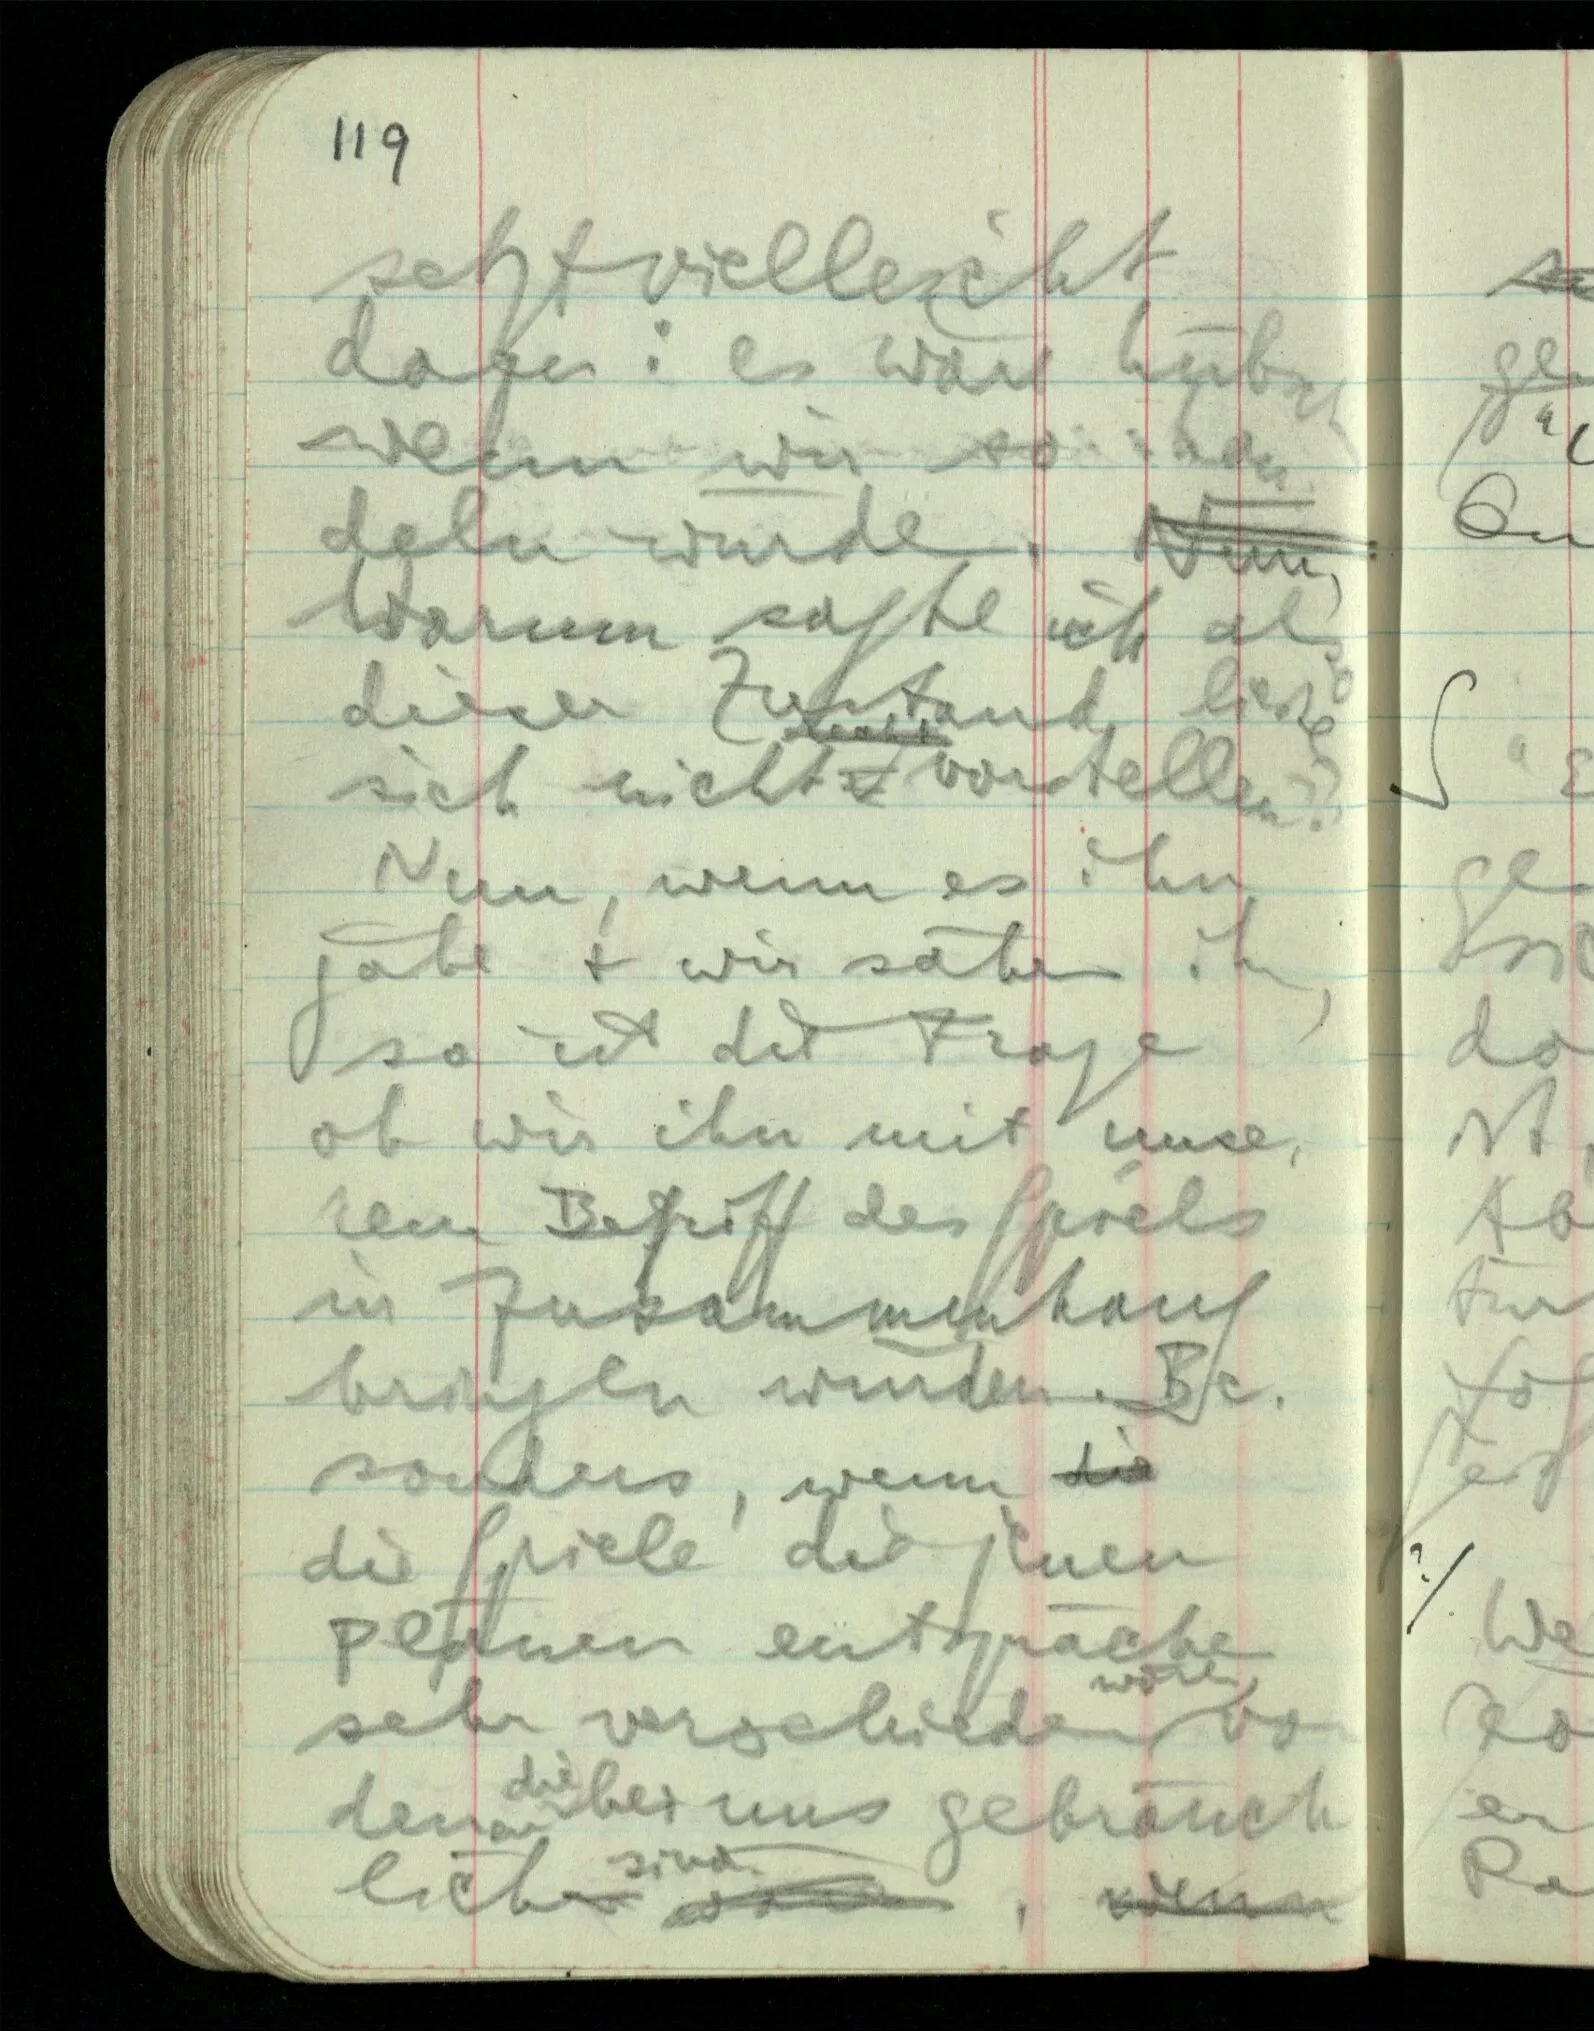 119
setzt vielleicht
dafür: es wäre hübsch
wenn wir so
deln würde. Nun,
Warum sagte ich also
dieser Zustand liesse
sich nicht vorstellen?
Nun, wenn es ihn
gäbe + wir sähen ihn,
so ist die Frage
ob wir ihn mit unse-
rem Begriff des Spiels
in Zusammenhang
bringen würden. Be-
sonders, wenn die
die Spiele die jenen
Plänen entspräche
wären
sehr verschieden von
die
denen bei uns gebräuch
sind
lich , wenn